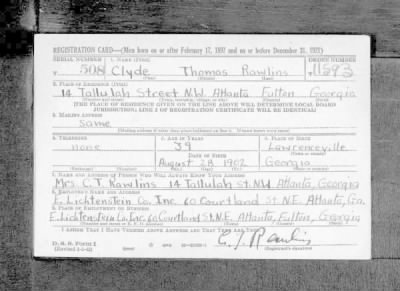 REGISTRATION CARD—(Men born on or after February 17, 1897 and on or before December 31, 1921)
SERIAL NUMBER 1. NAME (Print) ORDER NUMBER
508 Clyde Thomas Rawlins 11593
(First) (Middle) (Last)
2. PLACE OF RESIDENCE (Print)
14 Tallulah Street N.W. Atlanta Fulton Georgia
(Number and street) (Town, township, village, or city) (County) (State)
[THE PLACE OF RESIDENCE GIVEN ON THE LINE ABOVE WILL DETERMINE LOCAL BOARD
JURISDICTION; LINE 2 OF REGISTRATION CERTIFICATE WILL BE IDENTICAL]
3. MAILING ADDRESS
Same
[Mailing address if other than place indicated on line 2. If same insert word same]
4. TELEPHONE 5. AGE IN YEARS 6. PLACE OF BIRTH
none 39 Lawrenceville
DATE OF BIRTH
August 28 1902 Georgia
(Exchange) (Number) (Mo.) (Day) (Yr.) (State or country)
7. NAME AND ADDRESS OF PERSON WHO WILL ALWAYS KNOW YOUR ADDRESS
Mrs. C. T. Rawlins 14 Tallulah St. N.W Atlanta, Georgia
8. EMPLOYER'S NAME AND ADDRESS
E. Lichtenstein Co. Inc. 60 Courtland St. N.E. Atlanta, Ga.
9. PLACE OF EMPLOYMENT OR BUSINESS
E. Lichtenstein Co. Inc. 60 Courtland St. N.E. Atlanta, Fulton, Georgia
(Number and street or R. F. D. number) (Town) (County) (State)
I AFFIRM THAT I HAVE VERIFIED ABOVE ANSWERS AND THAT THEY ARE TRUE.
D. S. S. Form 1
(Revised 1-1-42) (over) C. T. Rawlins
(Registrant's signature)